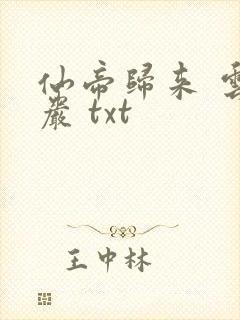 仙帝歸來 雲
嚴 txt
王中林